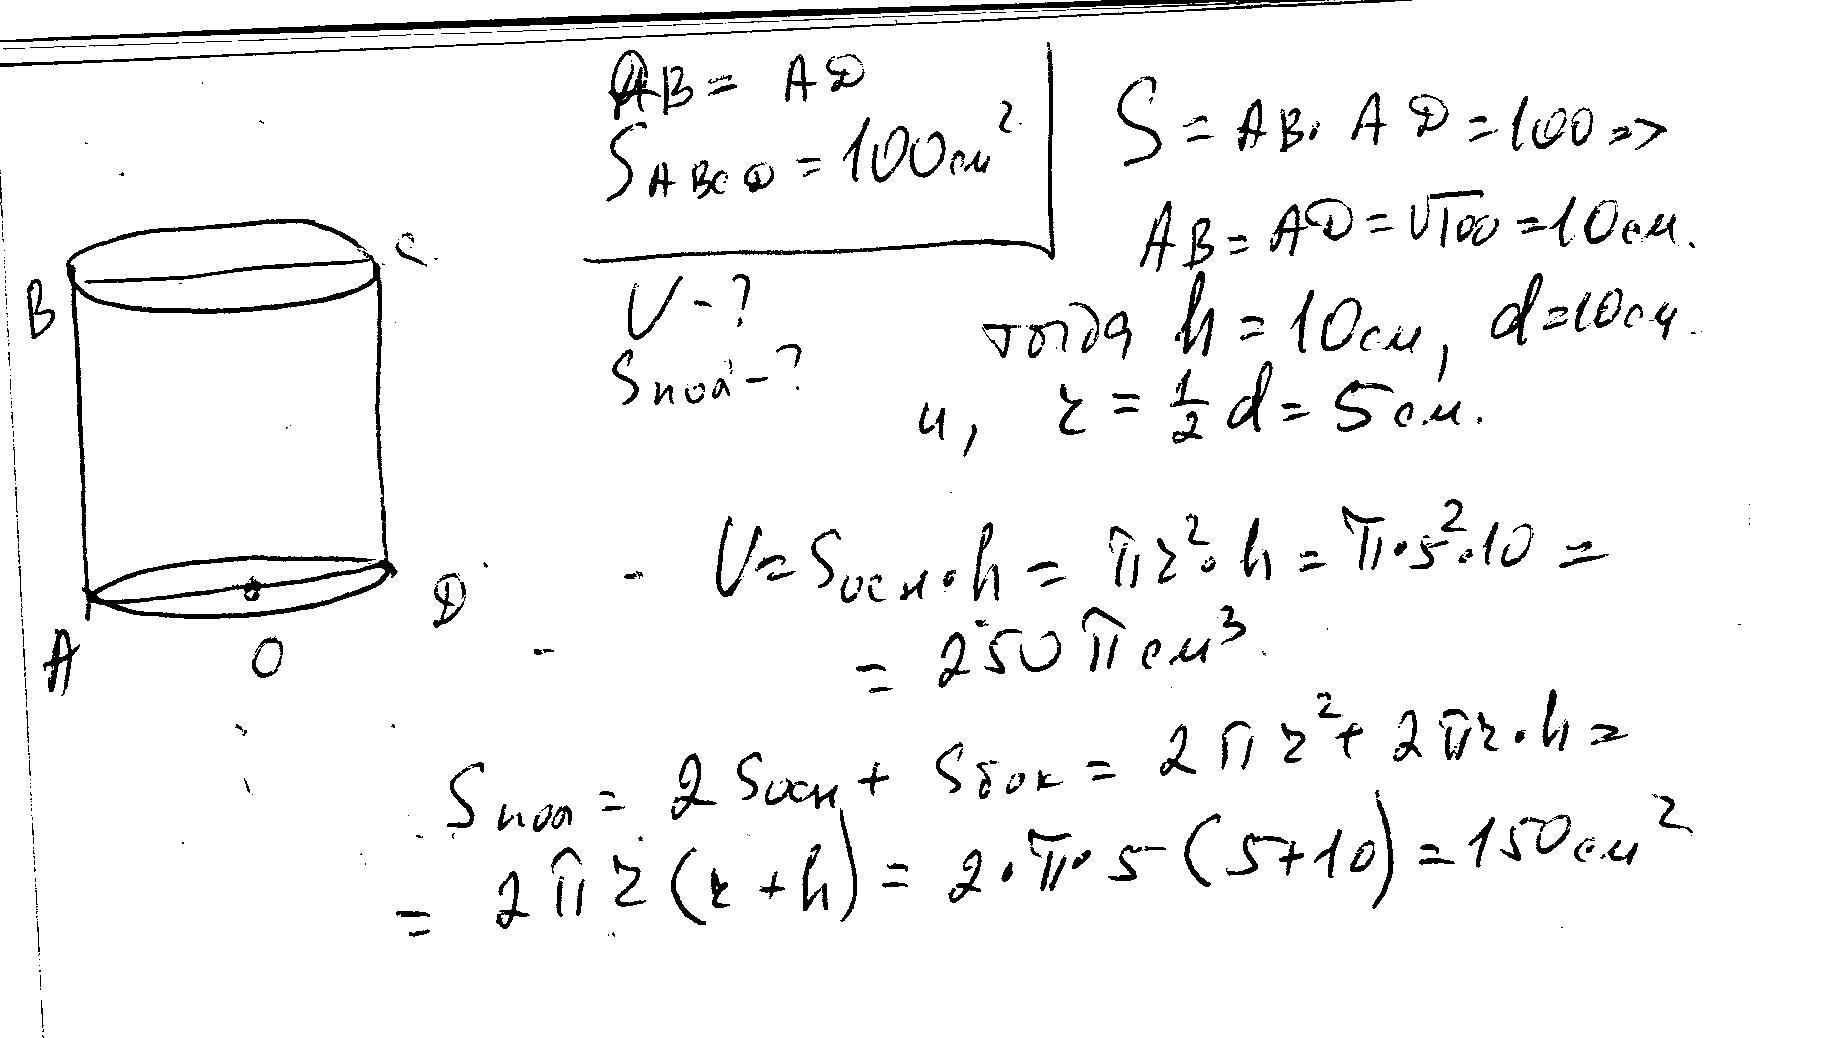 AB = AD
S ABCD = 100 см²
V - ?
Sпол - ?
S = AB · AD = 100 =>
AB = AD = √100 = 10 см.
тогда h = 10 см, d = 10 см.
и, r = 1/2 d = 5 см.
B
C
A
O
D
V = Sосн · h = πr² · h = π · 5² · 10 =
= 250 π см³.
Sпол = 2 Sосн + Sбок = 2πr² + 2πr · h =
= 2πr (r + h) = 2 · π · 5 (5 + 10) = 150 см²